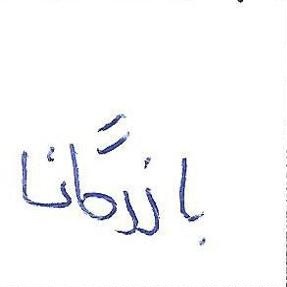 بازرگانا